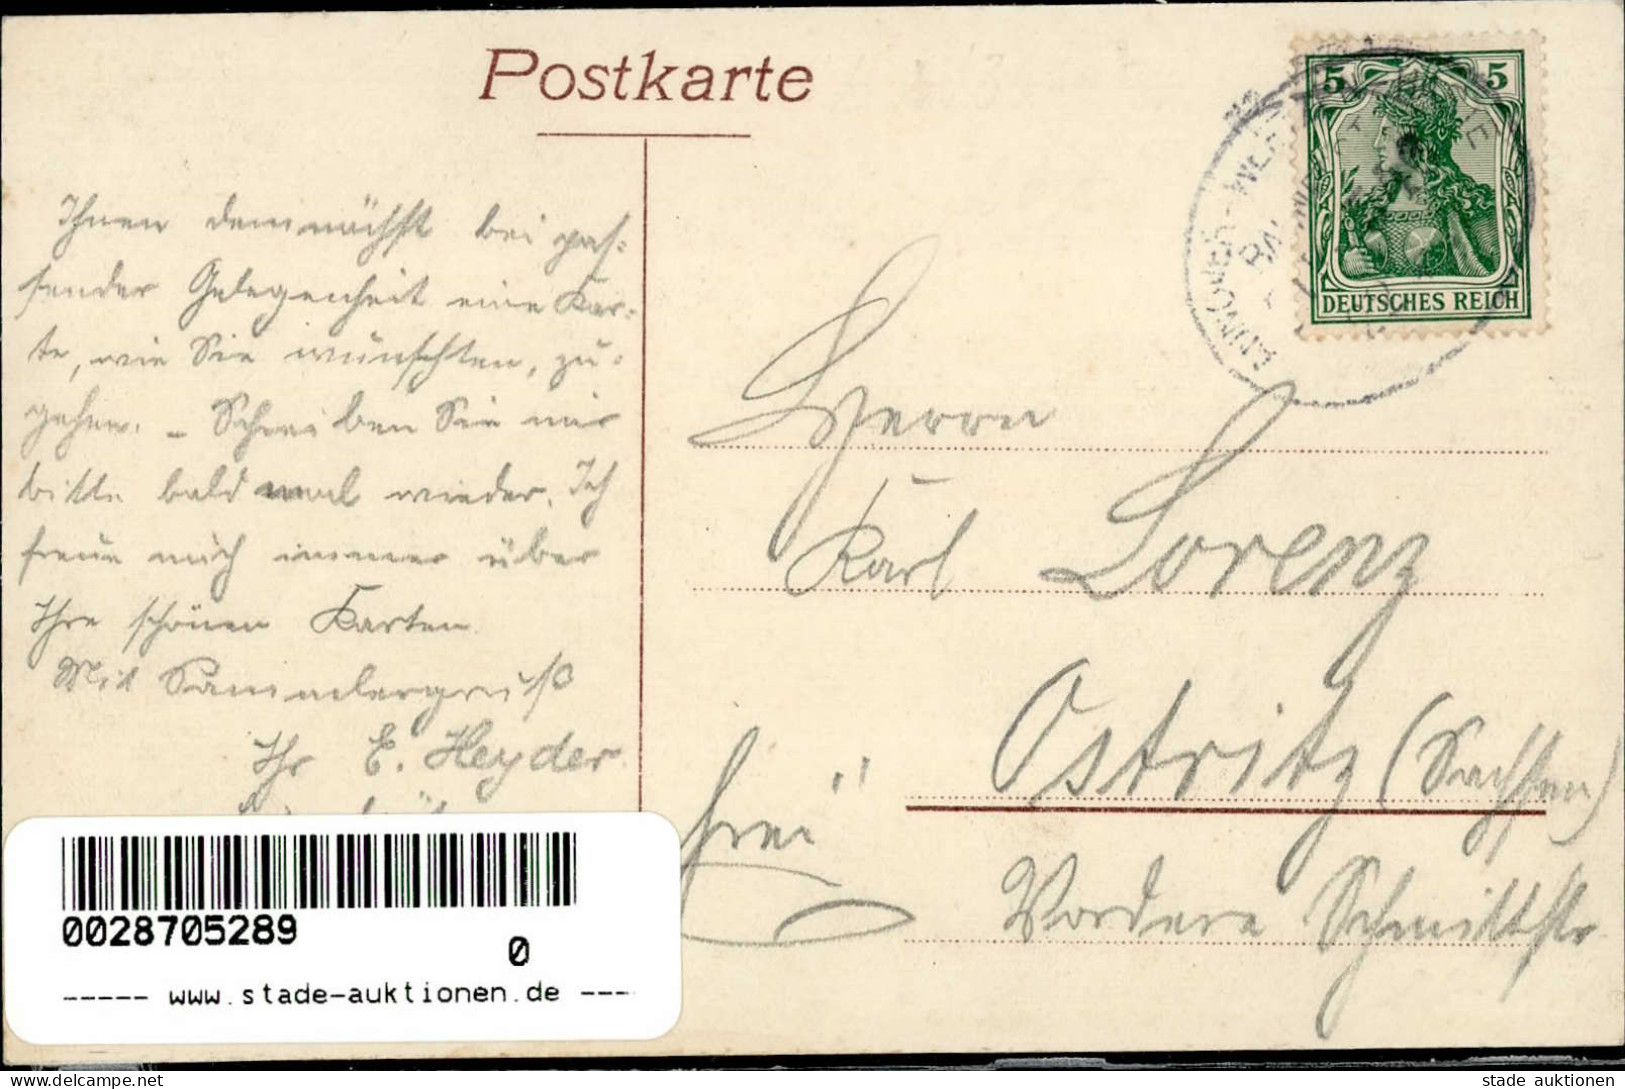 Postkarte
5 5
DEUTSCHES REICH
Ihnen demnächst bei pas-
sender Gelegenheit eine Kar-
te, wie Sie wünschten, zu-
gehen. - Schreiben Sie mir
bitte bald mal wieder. Ich
freue mich immer über
Ihre schönen Karten.
Mit Sammlergruß
Ihr E. Heyder
Herrn
Karl Lorenz
Ostritz (Sachsen)
frei
Vordere Schmittstr
0028705289
0
----- www.stade-auktionen.de ----
delcampe.net
stade auktionen